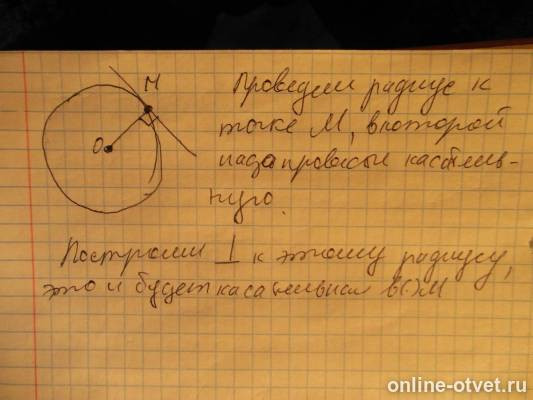 М
О
Проведем радиус к
точке М, в которой
надо провести касатель-
ную.
Построим ⊥ к этому радиусу,
это и будет касательная в(·)М
online-otvet.ru